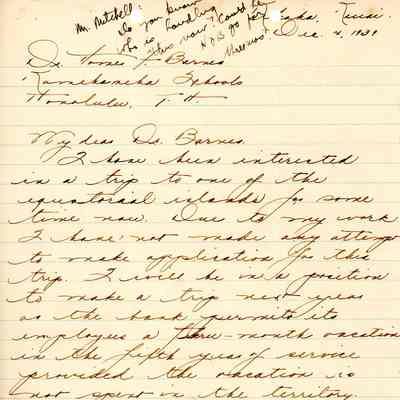 Mr. Mitchell:
Do you know
who is handling
this now? Could he
go
Kauai.
Dec. 4, 1939
Dr. Homer F. Barnes
Kamehameha Schools
Honolulu, T. H.
My dear Dr. Barnes,
I have been interested
in a trip to one of the
equatorial islands for some
time now. Due to my work
I have not made any attempt
to make application for this
trip. I will be in a position
to make a trip next year
as the bank permits its
employees a three-month vacation
in the fifth year of service
provided the vacation is
not spent in the territory.